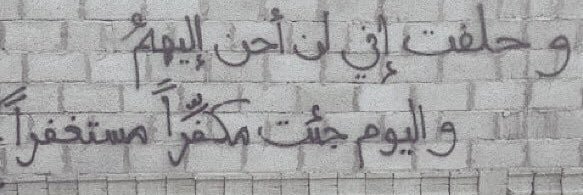 و حلفت إني لن أحن إليهمُ
و اليوم جئت مكفِّراً مستغفراً